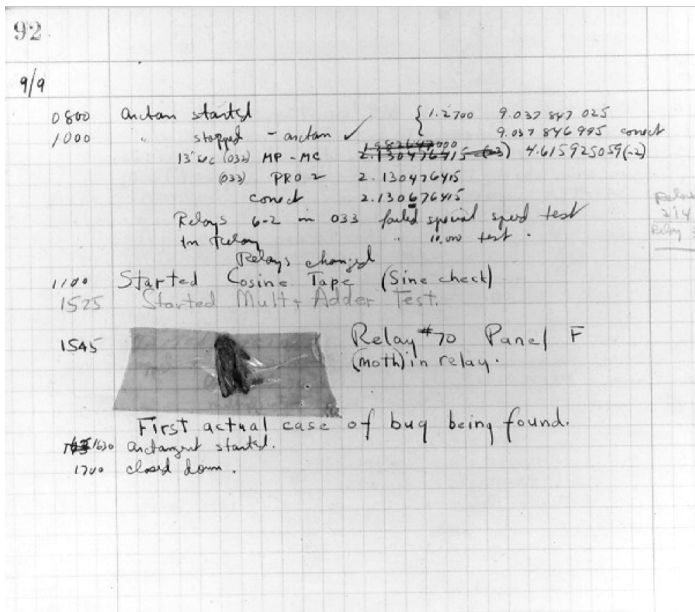 92
9/9
0800 arctan started { 1.2700 9.037 847 025
1000 " stopped - arctan ✓ 9.037 846 995 correct
13" uc (032) MP - MC 2.130476415 (-3) 4.615925059 (-2)
(033) PRO 2 2.130476415
correct 2.130676415
Relays 6-2 in 033 failed special speed test
In Relay " 10.000 test .
Relays changed
1100 Started Cosine Tape (Sine check)
1525 Started Mult + Adder Test.
1545 Relay #70 Panel F
(moth) in relay.
First actual case of bug being found.
1630 arctangent started.
1700 closed down .